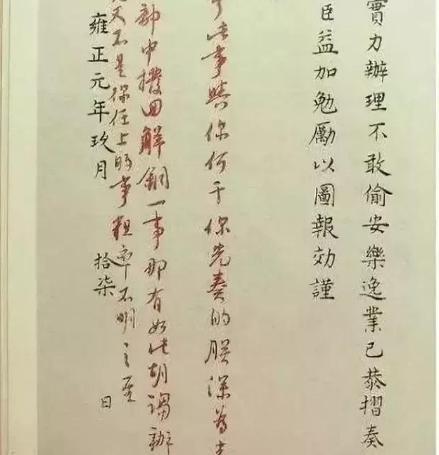 實力辦理不敢偷安樂逸業已恭摺奏
臣益加勉勵以圖報効謹
此事與你何干你先奏的朕深為
部中撥回解銅一事那有如此胡謅辦
又不是你任上的事粗率不明之至
雍正元年玖月 拾柒 日